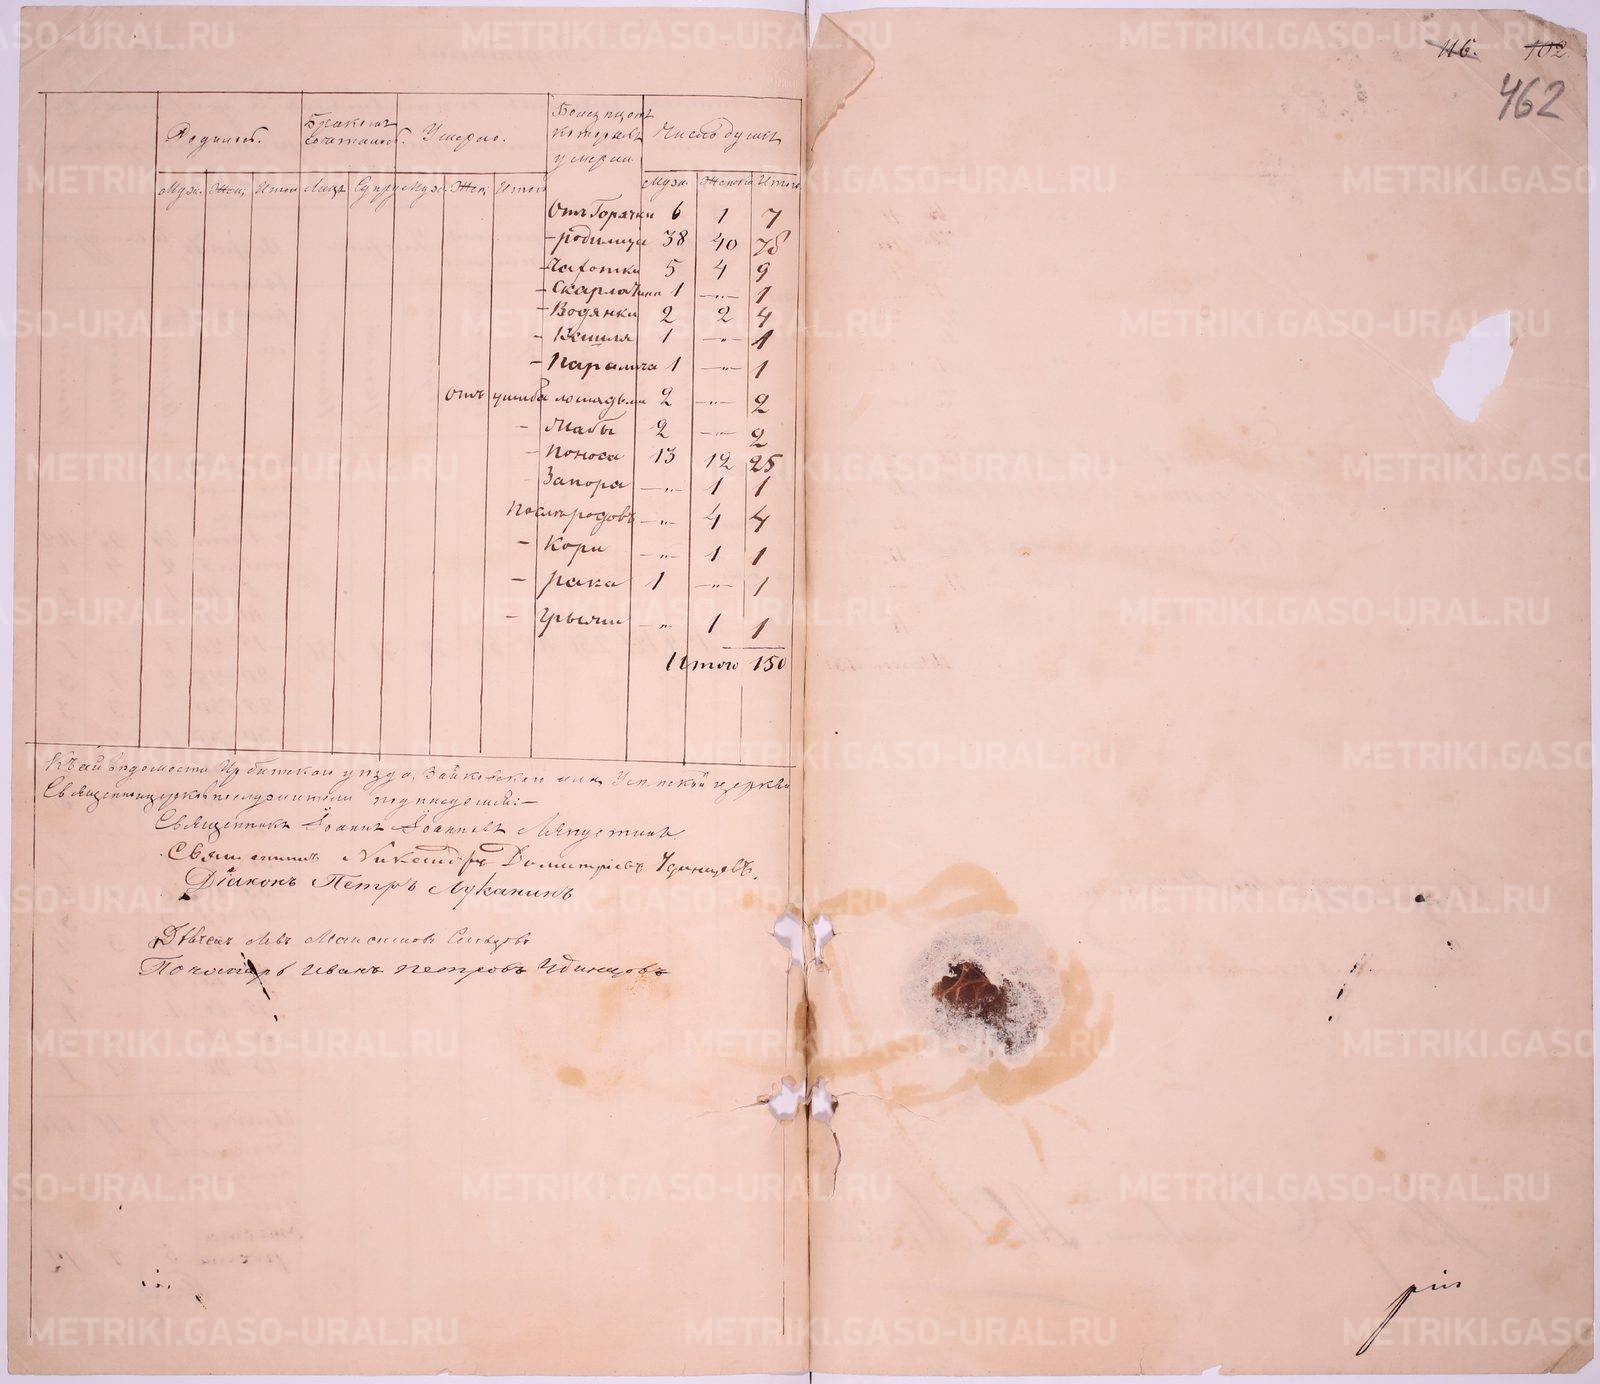 116. 102
462
Родилось. Бракомъ сочетались. Умерло. котораго умерли Число душъ
Муж. Жен. Итого Муж. Жен. Итого Муж. Женска Итого
Отъ Горячки 6 1 7
- родимца 38 40 78
- Чахотки 5 4 9
- Скарлатины 1 —„— 1
- Водянки 2 2 4
- Кашля 1 —„— 1
- Паралича 1 —„— 1
Отъ ушиба лошадьми 2 —„— 2
- Жабы 2 —„— 2
- Поноса 13 12 25
Запора —„— 1 1
Послѣ родовъ —„— 4 4
- Кори —„— 1 1
- рака 1 —„— 1
- грыжи „ 1 1
Итого 150
Къ сей вѣдомости Ирбитскаго уѣзда, Зайковской церкви
Священноцерковнослужители подписуемся:-
Священникъ Іоаннъ Іоанновъ Ляпустинъ
Священникъ Никандръ Димитріевъ Удинцовъ.
Діаконъ Петръ Луканинъ
Левъ
Иванъ Петровъ Удинцовъ
METRIKI.GASO-URAL.RU